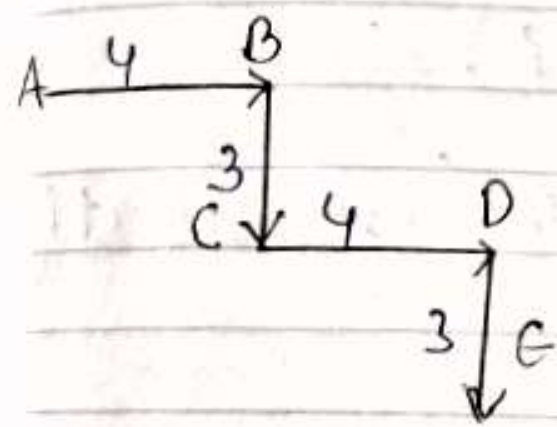 A 4 B
3
C 4 D
3 E